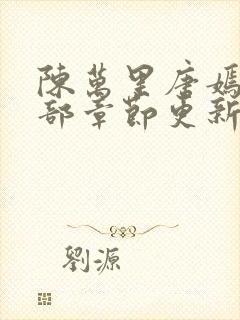 陳萬里唐嫣
部章節更新
劉源